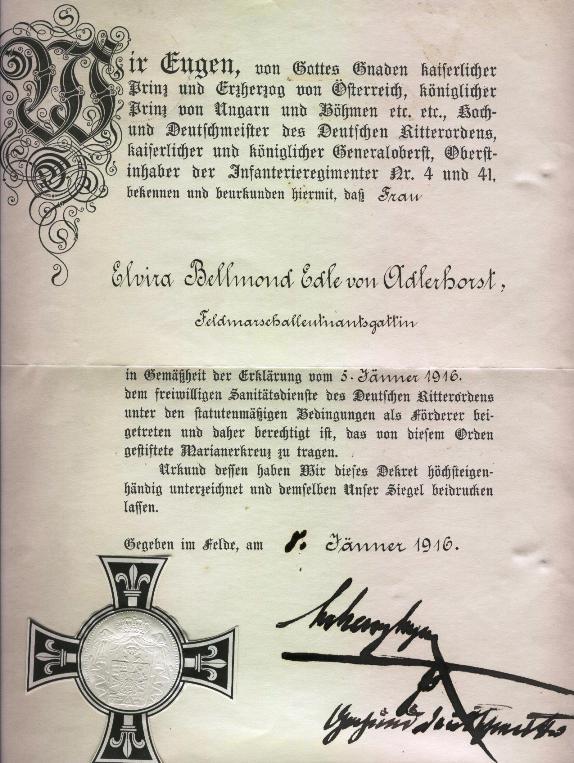 Wir Eugen, von Gottes Gnaden kaiserlicher
Prinz und Erzherzog von Österreich, königlicher
Prinz von Ungarn und Böhmen etc. etr., Hoch-
und Deutschmeister des Deutschen Ritterordens,
kaiserlicher und königlicher Generaloberst, Oberst-
inhaber der Infanterieregimenter Nr. 4 und 41,
bekennen und beurkunden hiermit, daß Frau
Elvira Bellmond Edle von Adlerhorst,
Feldmarschalleutnantsgattin
in Gemäßheit der Erklärung vom 5. Jänner 1916.
dem freiwilligen Sanitätsdienste des Deutschen Ritterordens
unter den statutenmäßigen Bedingungen als Förderer bei-
getreten und daher berechtigt ist, das von diesem Orden
gestiftete Marianerkreuz zu tragen.
Urkund dessen haben Wir dieses Dekret höchsteigen-
händig unterzeichnet und demselben Unser Siegel beidrucken
lassen.
Gegeben im Felde, am 8. Jänner 1916.